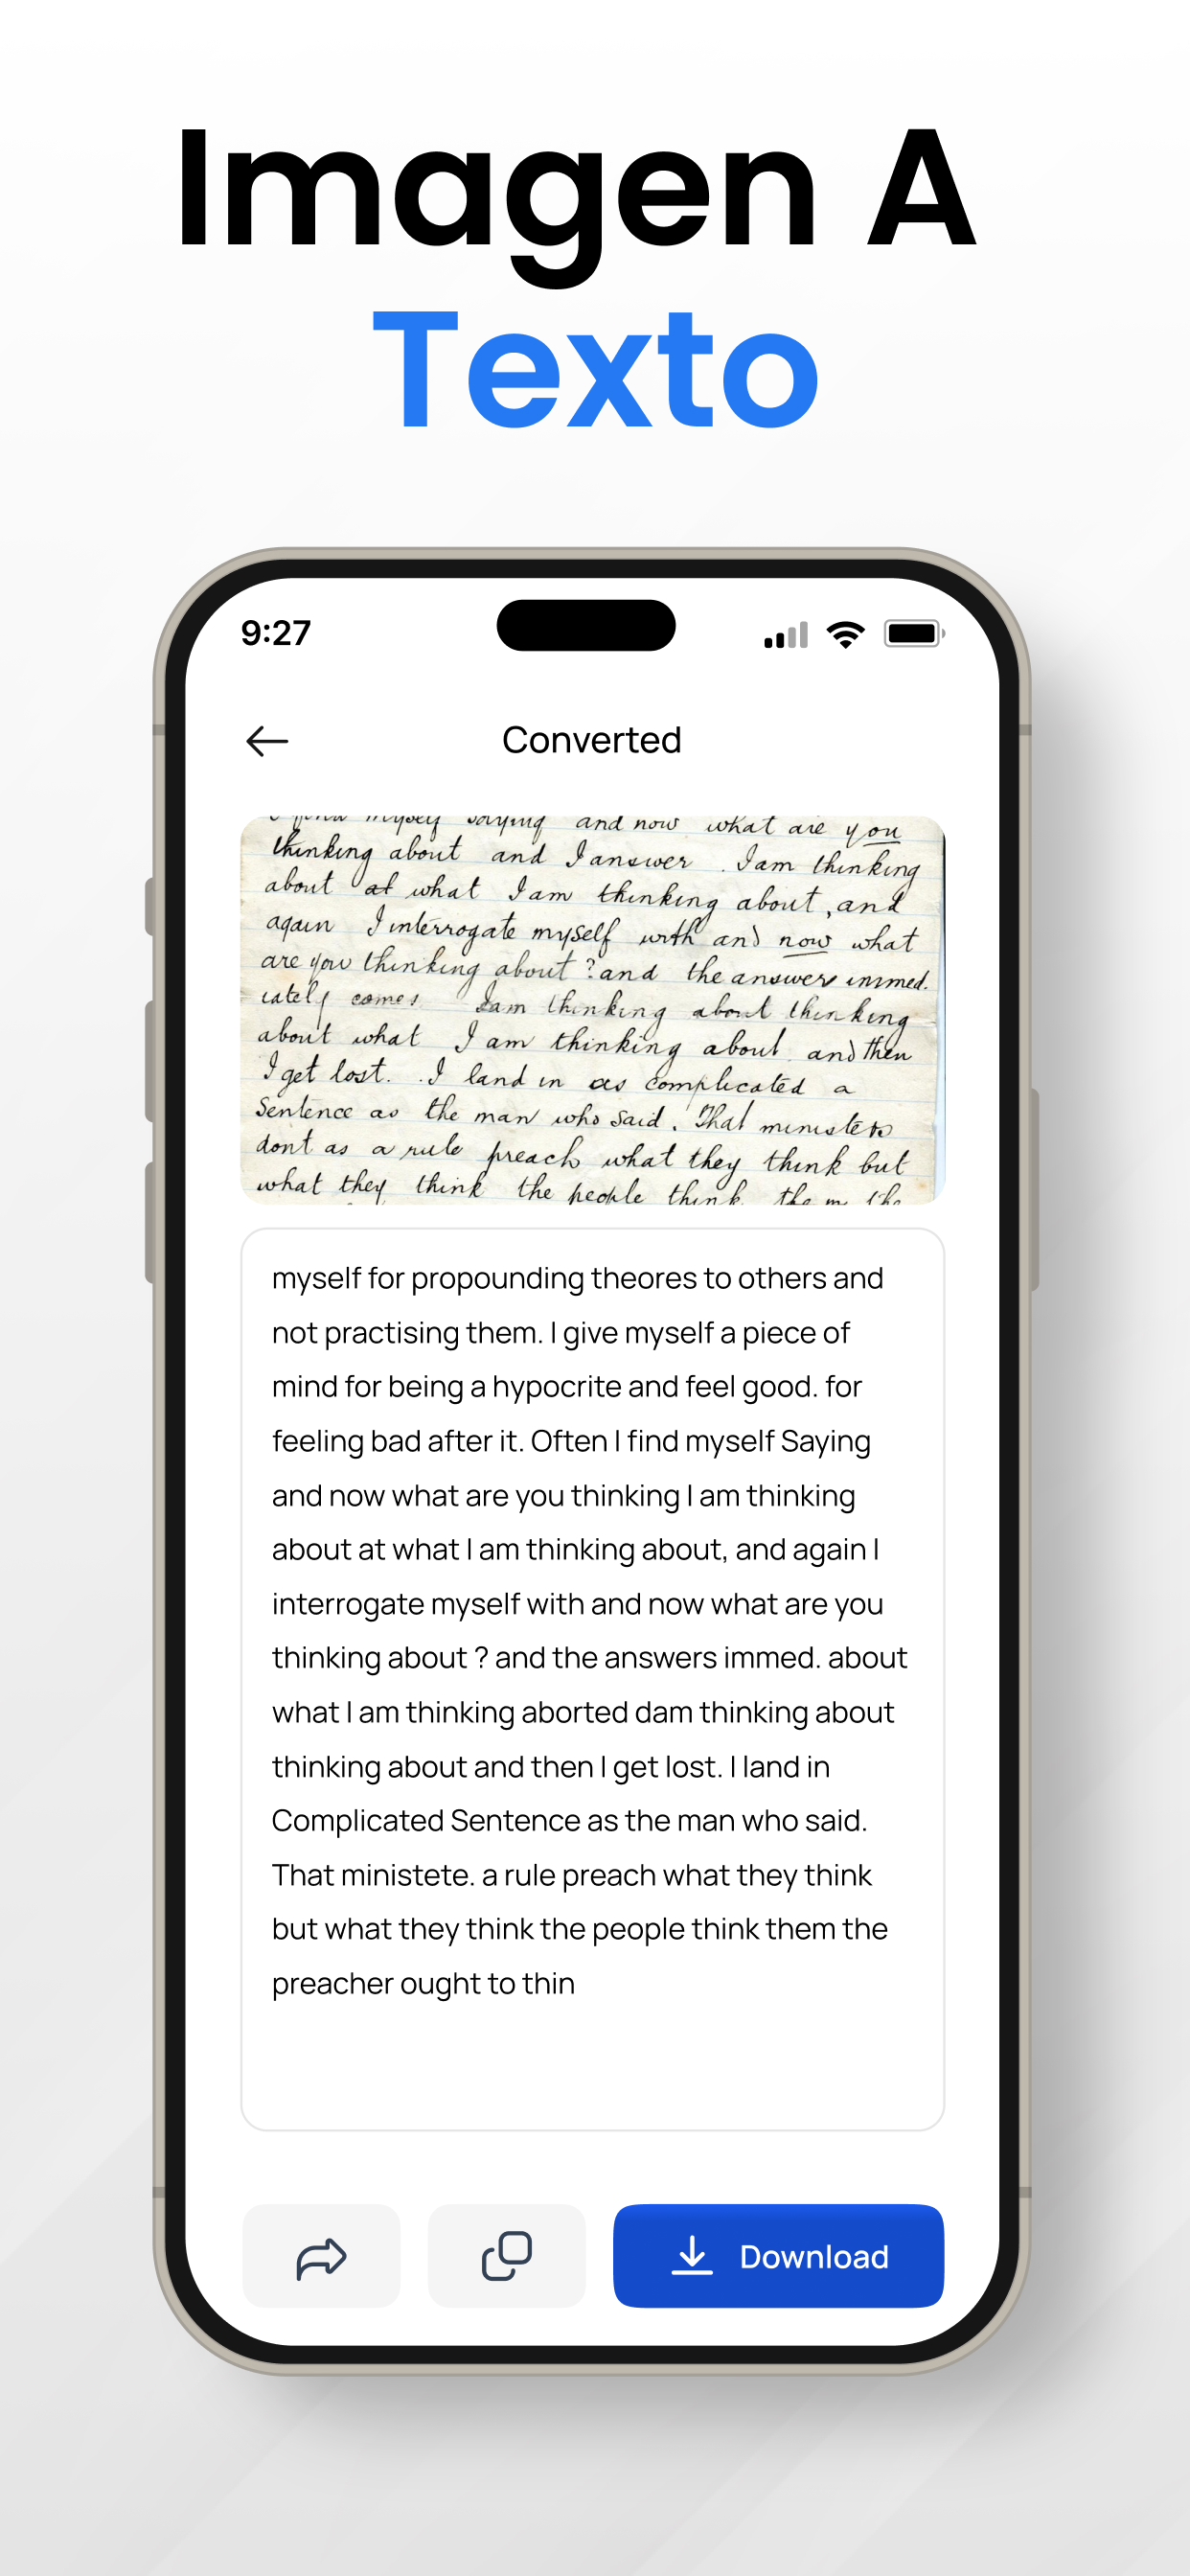 Imagen A
Texto
9:27
Converted
I find myself saying and now what are you
thinking about and I answer . I am thinking
about at what I am thinking about , and
again I interrogate myself with and now what
are you thinking about ? and the answers immed.
iately comes I am thinking about thinking
about what I am thinking about and then
I get lost. . I land in as complicated a
Sentence as the man who said . That ministers
dont as a rule preach what they think but
what they think the people think the m the
myself for propounding theores to others and
not practising them. I give myself a piece of
mind for being a hypocrite and feel good. for
feeling bad after it. Often I find myself Saying
and now what are you thinking I am thinking
about at what I am thinking about, and again I
interrogate myself with and now what are you
thinking about ? and the answers immed. about
what I am thinking aborted dam thinking about
thinking about and then I get lost. I land in
Complicated Sentence as the man who said.
That ministete. a rule preach what they think
but what they think the people think them the
preacher ought to thin
Download